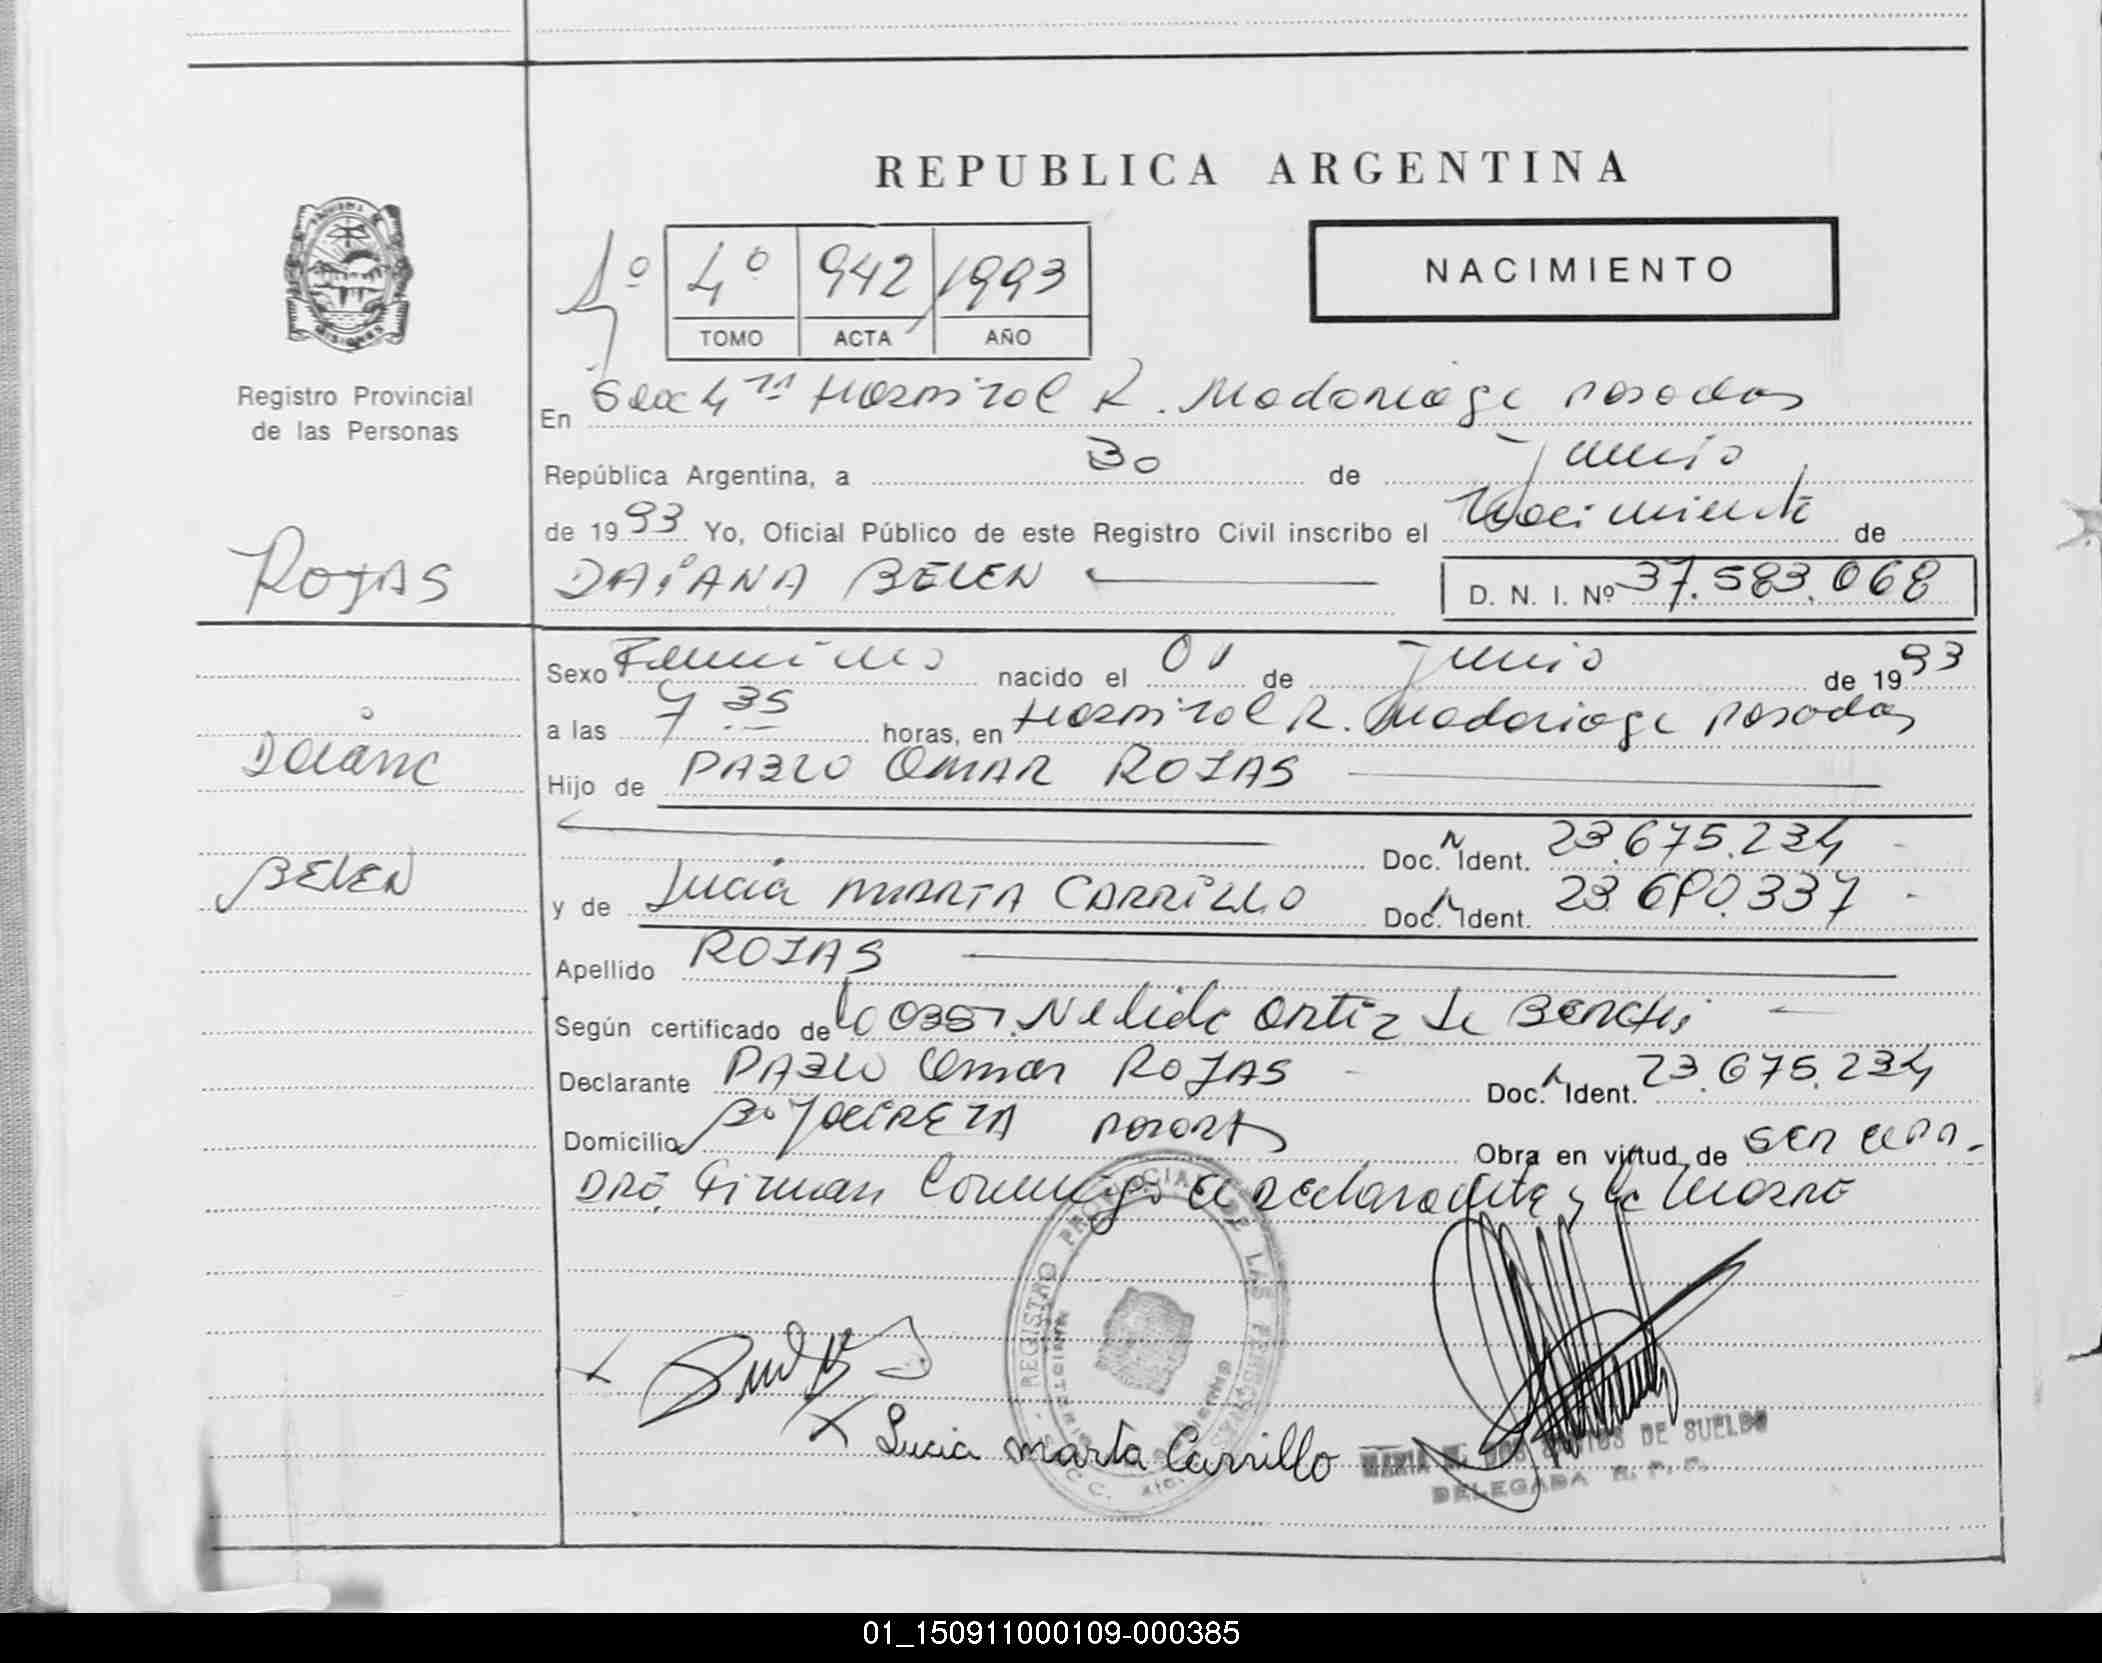 REPUBLICA ARGENTINA
4º 942 1993
TOMO ACTA AÑO
NACIMIENTO
MISIONES
Registro Provincial
de las Personas
En Secc 4ta Hospital R. Madariaga Posadas
República Argentina, a 30 de Junio
de 1993 Yo, Oficial Público de este Registro Civil inscribo el Nacimiento de
ROJAS
DAIANA BELEN
D. N. I. Nº 37.583.068
Sexo Femenino nacido el 01 de Junio de 1993
a las 7 35 horas, en Hospital R. Madariaga Posadas
Daiana
Hijo de PABLO OMAR ROJAS
Doc. Ident. 23.675.234
BELEN
y de Lucia MARTA CARRILLO Doc. Ident. 23.690.337
Apellido ROJAS
Según certificado de Nelida Ortiz de
Declarante PABLO Omar ROJAS Doc. Ident. 23.675.234
Domicilio Bº YACIRETA Posadas Obra en virtud de ser el pa-
DRE, Firman Conmigo el Declarante y la Madre
REGISTRO PROVINCIAL DE LAS PERSONAS
Lucia marta Carrillo
DE SUELDO
DELEGADA R. P. P.
01_150911000109-000385